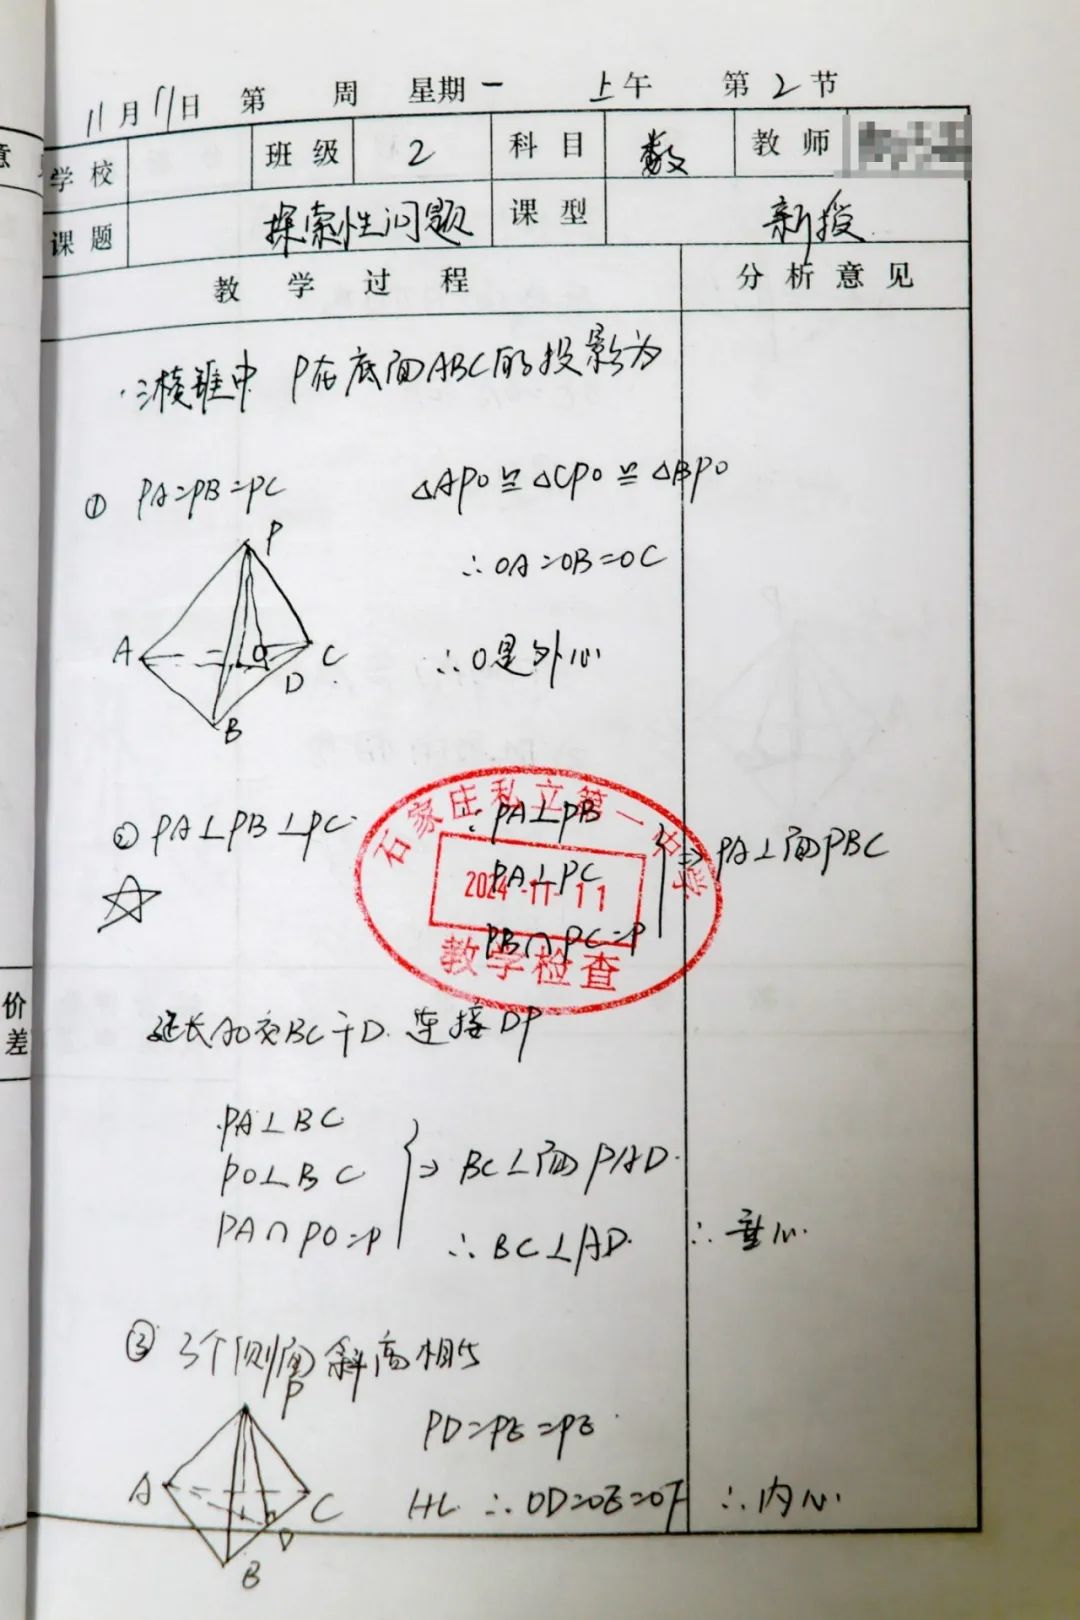 11月11日 第 周 星期一 上午 第2节
学校 班级 2 科目 数 教师
课题 探索性问题 课型 新授
教学过程 分析意见
三棱锥中 P在底面ABC的投影为
① PA=PB=PC △APO≌△CPO≌△BPO
∴OA=OB=OC
∴O是外心
P
A O C
D
B
石家庄私立第一中学
2024-11-11
教学检查
② PA⊥PB⊥PC ∵PA⊥PB
PA⊥PC ⇒PA⊥面PBC
PB∩PC=P
延长AO交BC于D. 连接DP
PA⊥BC
PO⊥BC ⇒ BC⊥面PAD.
PA∩PO=P ∴BC⊥AD. ∴垂心.
③ 3个侧面斜高相等
P
PD=PE=PE
A C HL ∴OD=OE=OF ∴内心.
D
B
价
差
意